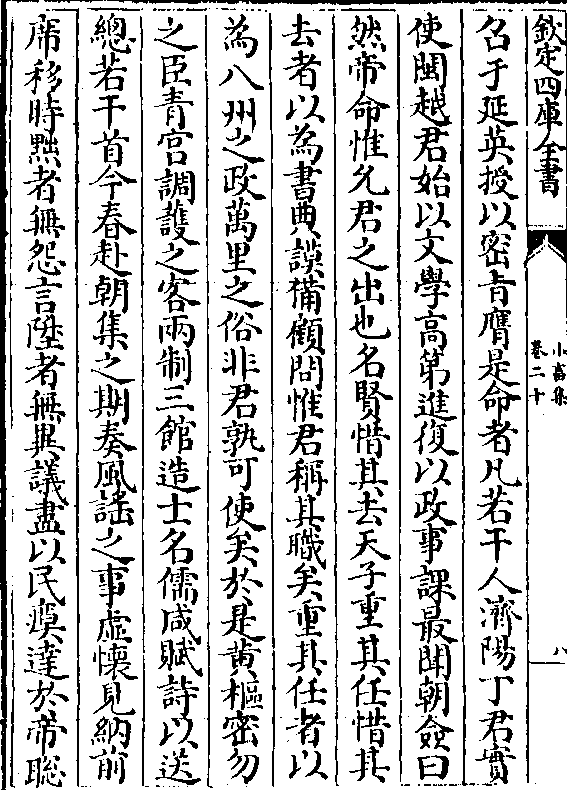 欽定四庫全書
小畜集
卷二十
八
召于延英授以密旨膺是命者凡若干人濟陽丁君實
使閩越君始以文學髙第進復以政事課最聞朝僉曰
然帝命惟允君之出也名賢惜其去天子重其任惜其
去者以為書典謨備顧問惟君稱其職矣重其任者以
為八州之政萬里之俗非君孰可使矣於是黄樞密勿
之臣青宫調䕶之客兩制三館造士名儒咸賦詩以送
總若干首今春赴朝集之期奏風謡之事虚懷見納前
席移時黜者無怨言陞者無異議盡以民瘼達於帝聡